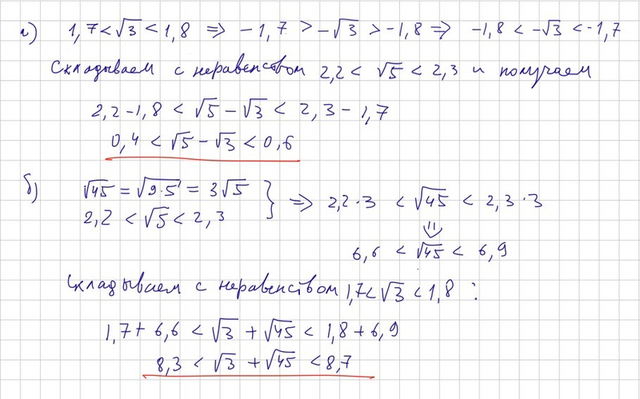 а) 1,7<√3<1,8 ⇒ -1,7 >-√3 >-1,8 ⇒ -1,8 < -√3 < -1,7
Складываем с неравенством 2,2 < √5 < 2,3 и получаем
2,2-1,8 < √5-√3 < 2,3-1,7
0,4 < √5-√3 < 0,6
б) √45 = √9·5 = 3√5
2,2 < √5 < 2,3 } ⇒ 2,2·3 < √45 < 2,3·3
⇓
6,6 < √45 < 6,9
Складываем с неравенством 1,7<√3<1,8 :
1,7+6,6 < √3 + √45 < 1,8+6,9
8,3 < √3 + √45 < 8,7